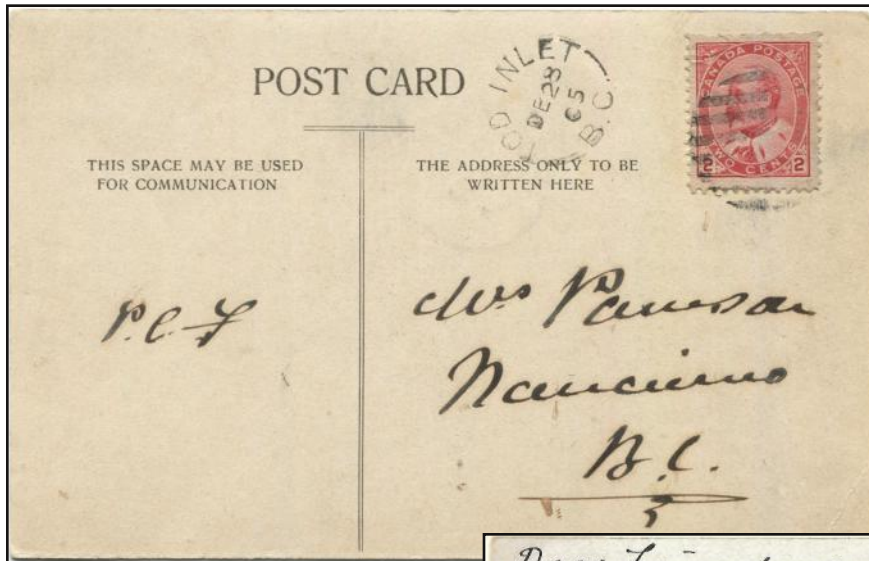 POST CARD
TOD INLET
DE 28
05
B.C.
CANADA POSTAGE
TWO CENTS
2 2
THIS SPACE MAY BE USED
FOR COMMUNICATION
THE ADDRESS ONLY TO BE
WRITTEN HERE
P.C.F
Mrs
Nanaimo
B.C.